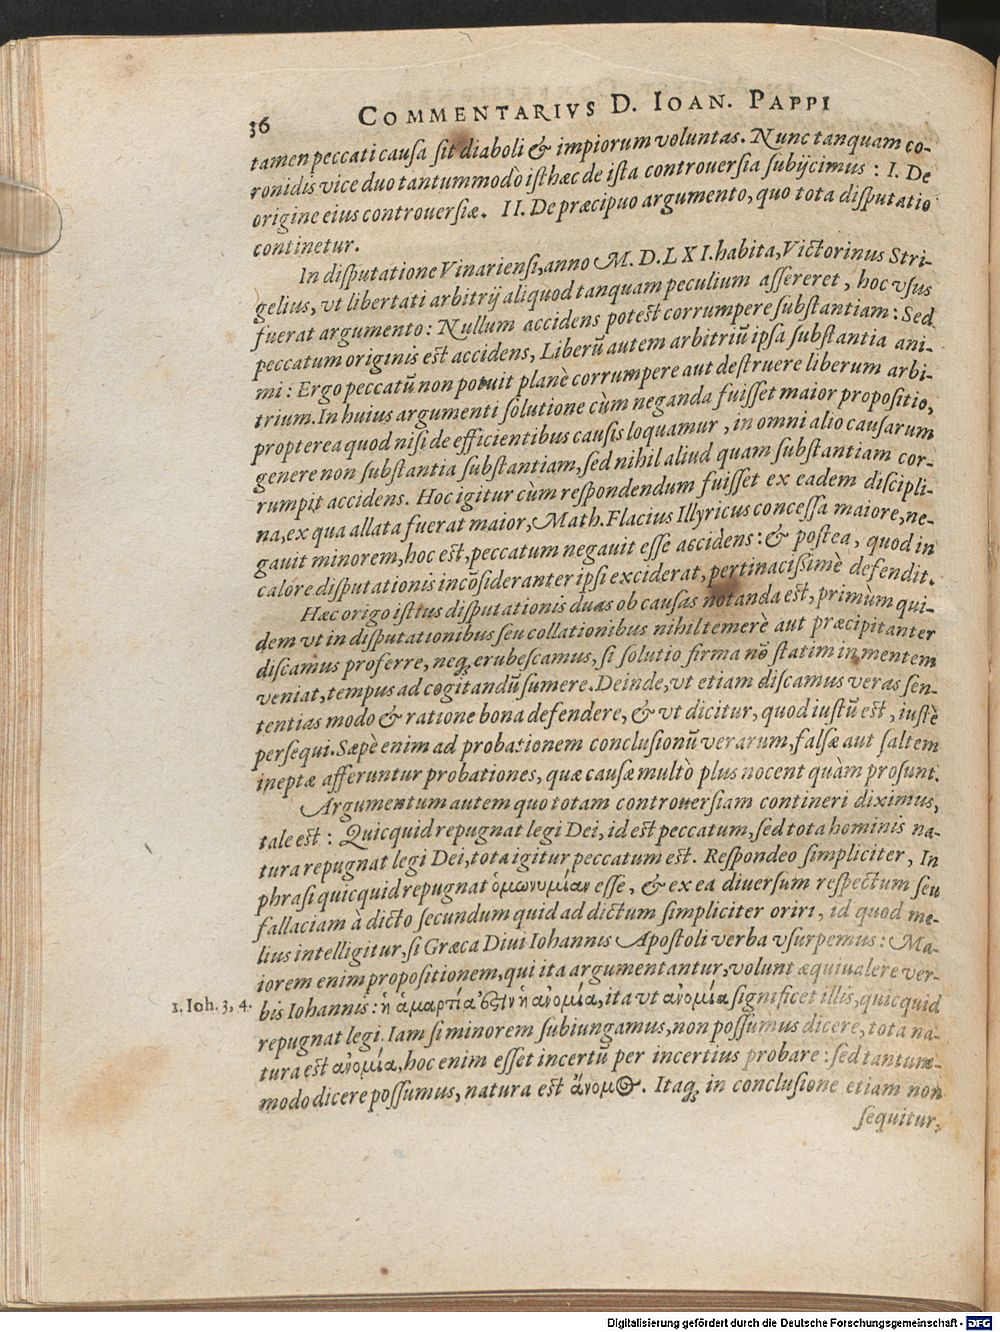 36 COMMENTARIVS D. IOAN. PAPPI
tamen peccati causa sit diaboli & impiorum voluntas. Nunc tanquam co-
ronidis vice duo tantummodo isthæc de ista controuersia subijcimus: I. De
origine eius controuersiæ. II. De præcipuo argumento, quo tota disputatio
continetur.
In disputatione Vinariensi, anno M. D. LXI. habita, Victorinus Stri-
gelius, vt libertati arbitrij aliquod tanquam peculium assereret, hoc vsus
fuerat argumento: Nullum accidens potest corrumpere substantiam: Sed
peccatum originis est accidens, Liberũ autem arbitriũ ipsa substantia ani-
mi: Ergo peccatũ non potuit planè corrumpere aut destruere liberum arbi-
trium. In huius argumenti solutione cùm neganda fuisset maior propositio,
propterea quod nisi de efficientibus causis loquamur, in omni alio causarum
genere non substantia substantiam, sed nihil aliud quam substantiam cor-
rumpit accidens. Hoc igitur cùm respondendum fuisset ex eadem discipli-
na, ex qua allata fuerat maior, Math. Flacius Illyricus concessa maiore, ne-
gauit minorem, hoc est, peccatum negauit esse accidens: & postea, quod in
calore disputationis incõsideranter ipsi exciderat, pertinacissimè defendit.
Hæc origo istius disputationis duas ob causas notanda est, primùm qui-
dem vt in disputationibus seu collationibus nihil temerè aut præcipitanter
discamus proferre, neq; erubescamus, si solutio firma nõ statim in mentem
veniat, tempus ad cogitandũ sumere. Deinde, vt etiam discamus veras sen-
tentias modo & ratione bona defendere, & vt dicitur, quod iustũ est, iustè
persequi. Sæpè enim ad probationem conclusionũ verarum, falsæ aut saltem
ineptæ afferuntur probationes, quæ causæ multò plus nocent quàm prosunt.
Argumentum autem quo totam controuersiam contineri diximus,
tale est: Quicquid repugnat legi Dei, id est peccatum, sed tota hominis na-
tura repugnat legi Dei, tota igitur peccatum est. Respondeo simpliciter, In
phrasi quicquid repugnat ὁμωνυμίαν esse, & ex ea diuersum respectum seu
fallaciam à dicto secundum quid ad dictum simpliciter oriri, id quod me-
lius intelligitur, si Græca Diui Iohannis Apostoli verba vsurpemus: Ma-
iorem enim propositionem, qui ita argumentantur, volunt æquiualere ver-
1. Ioh. 3, 4. bis Iohannis: ἡ ἁμαρτία ἐστὶν ἡ ἀνομία, ita vt ἀνομία significet illis, quicquid
repugnat legi. Iam si minorem subiungamus, non possumus dicere, tota na-
tura est ἀνομία, hoc enim esset incertũ per incertius probare: sed tantum-
modo dicere possumus, natura est ἄνομος. Itaq; in conclusione etiam non
sequitur,
Digitalisierung gefördert durch die Deutsche Forschungsgemeinschaft - DFG